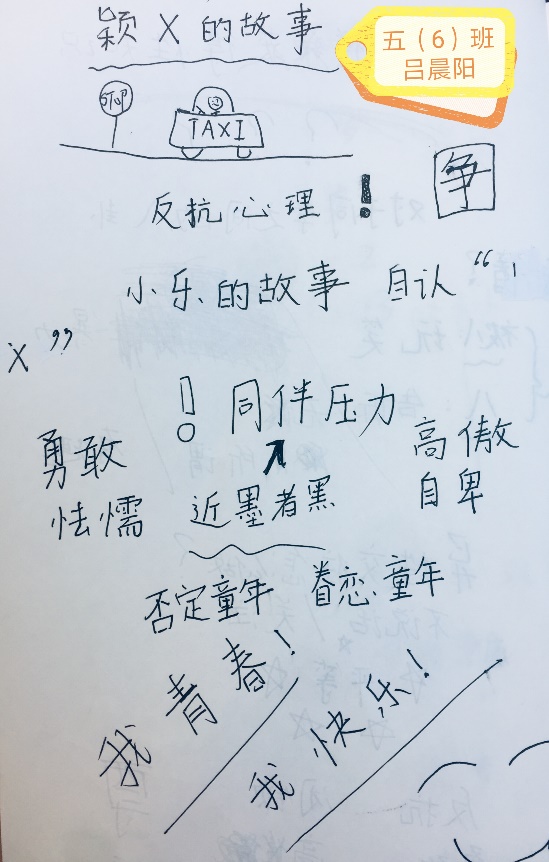 颖X的故事
五（6）班
吕晨阳
STOP
TAXI
争
反抗心理！
小乐的故事 自认“小
x”
！同伴压力
勇敢
怯懦
近墨者黑
高傲
自卑
否定童年 眷恋童年
我青春！
我快乐！